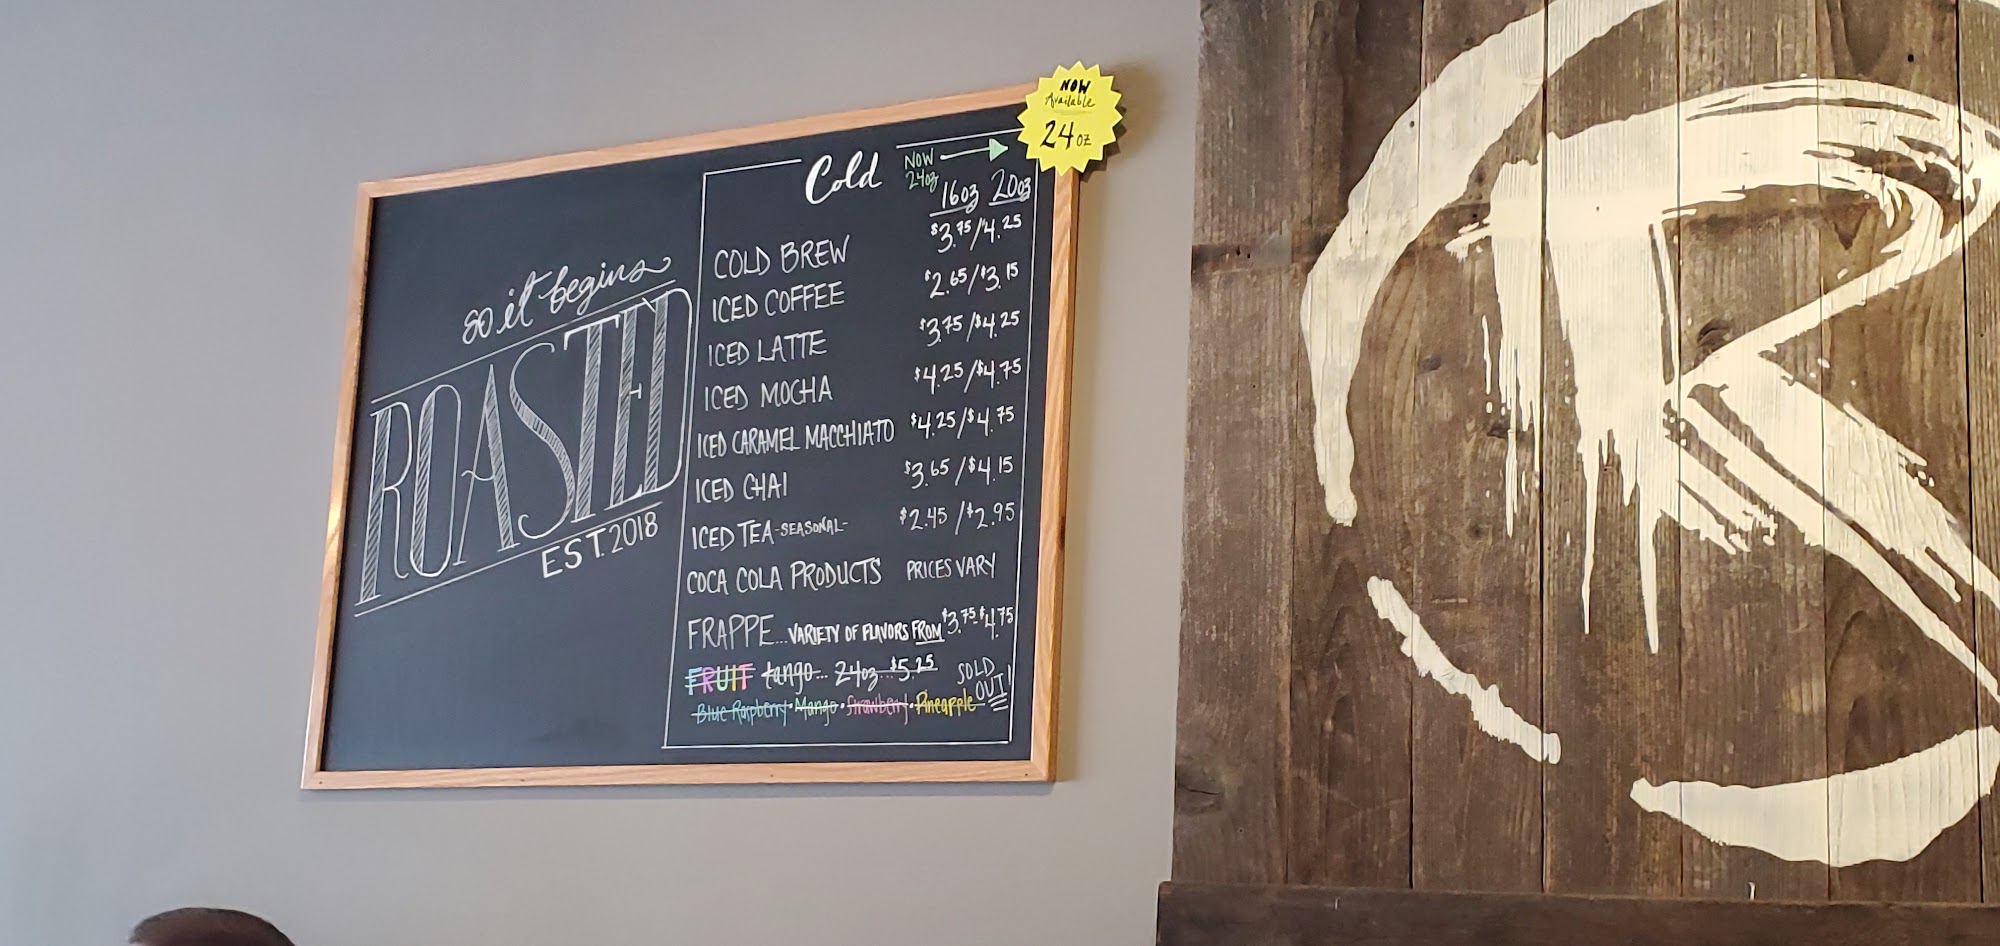 so it begins
ROASTED
EST. 2018
NOW
Available
24 oz
Cold
NOW
24oz
16oz 20oz
COLD BREW $3.75/4.25
ICED COFFEE $2.65/$3.15
ICED LATTE $3.75/$4.25
ICED MOCHA $4.25/$4.75
ICED CARAMEL MACCHIATO $4.25/$4.75
ICED CHAI $3.65/$4.15
ICED TEA -SEASONAL- $2.45/$2.95
COCA COLA PRODUCTS PRICES VARY
FRAPPE... VARIETY OF FLAVORS FROM $3.75-$4.75
FRUIT tango... 24oz...$5.25 SOLD
Blue Raspberry • Mango • Strawberry • Pineapple OUT!
R